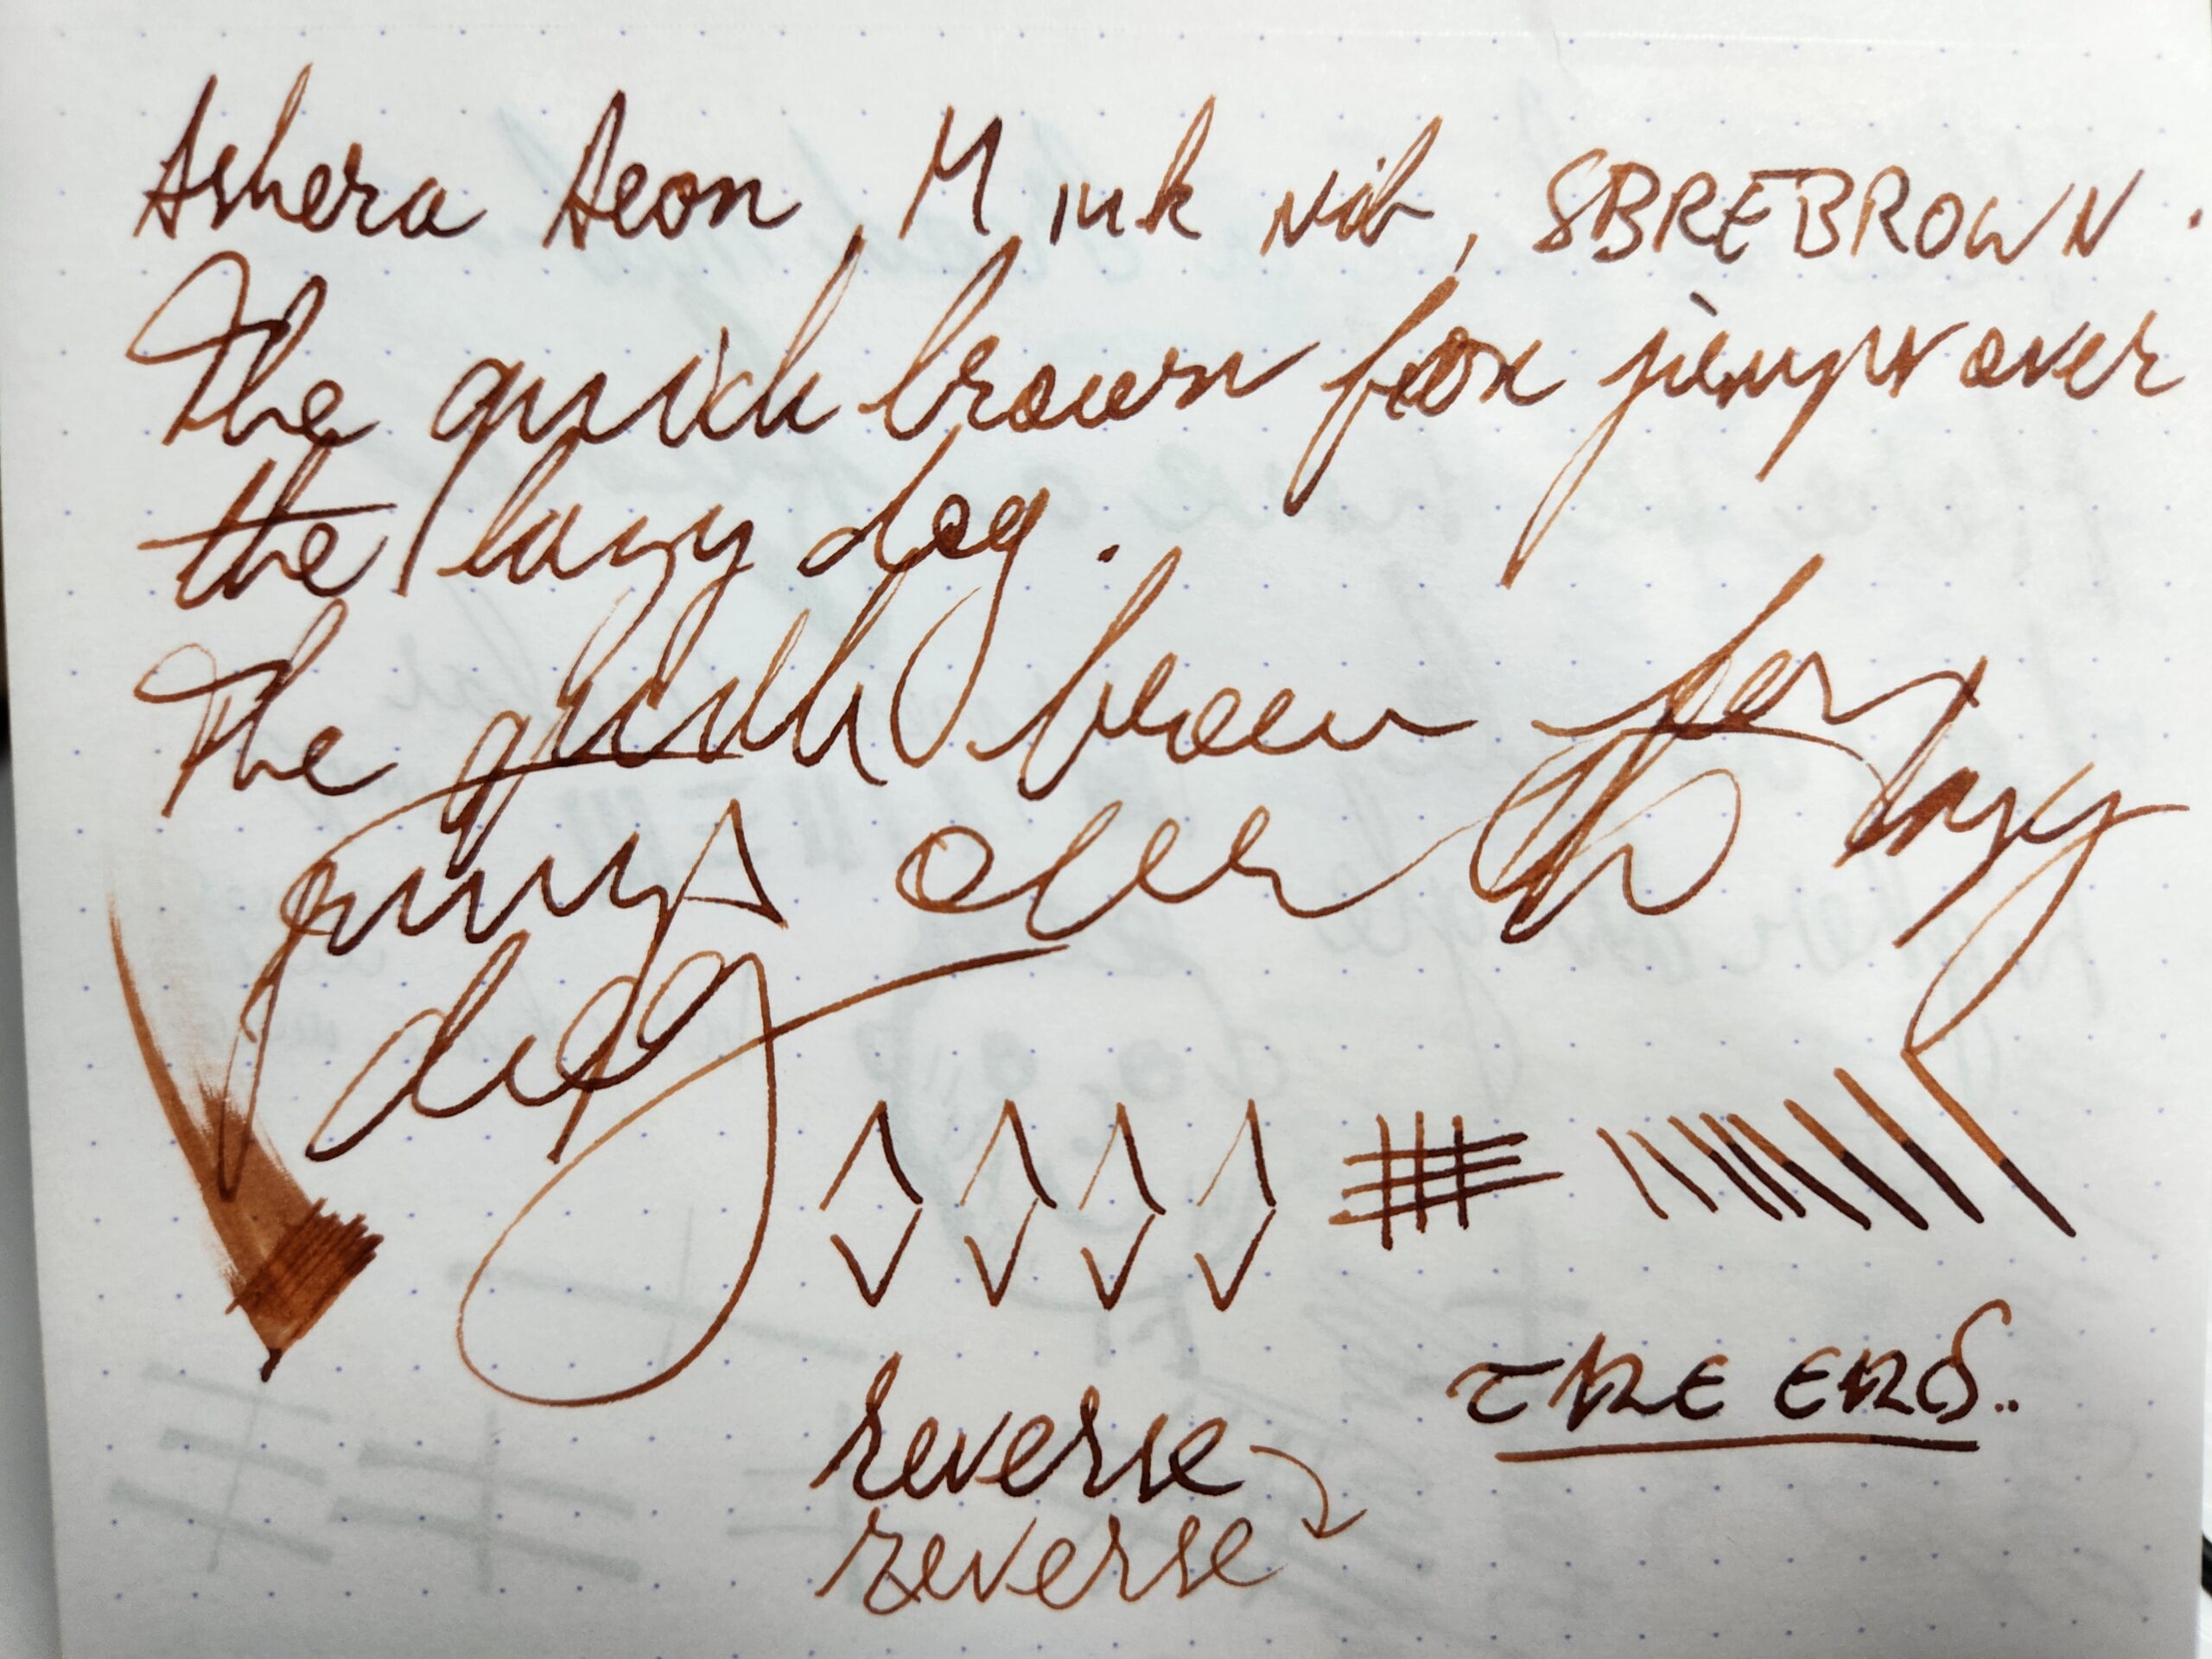 Ashera Aeon, M ink nib, SBREBROWN.
The quick brown fox jumps over
the lazy dog.
The quick brown fox
jumps over the lazy
dog
THE END..
reverse
reverse